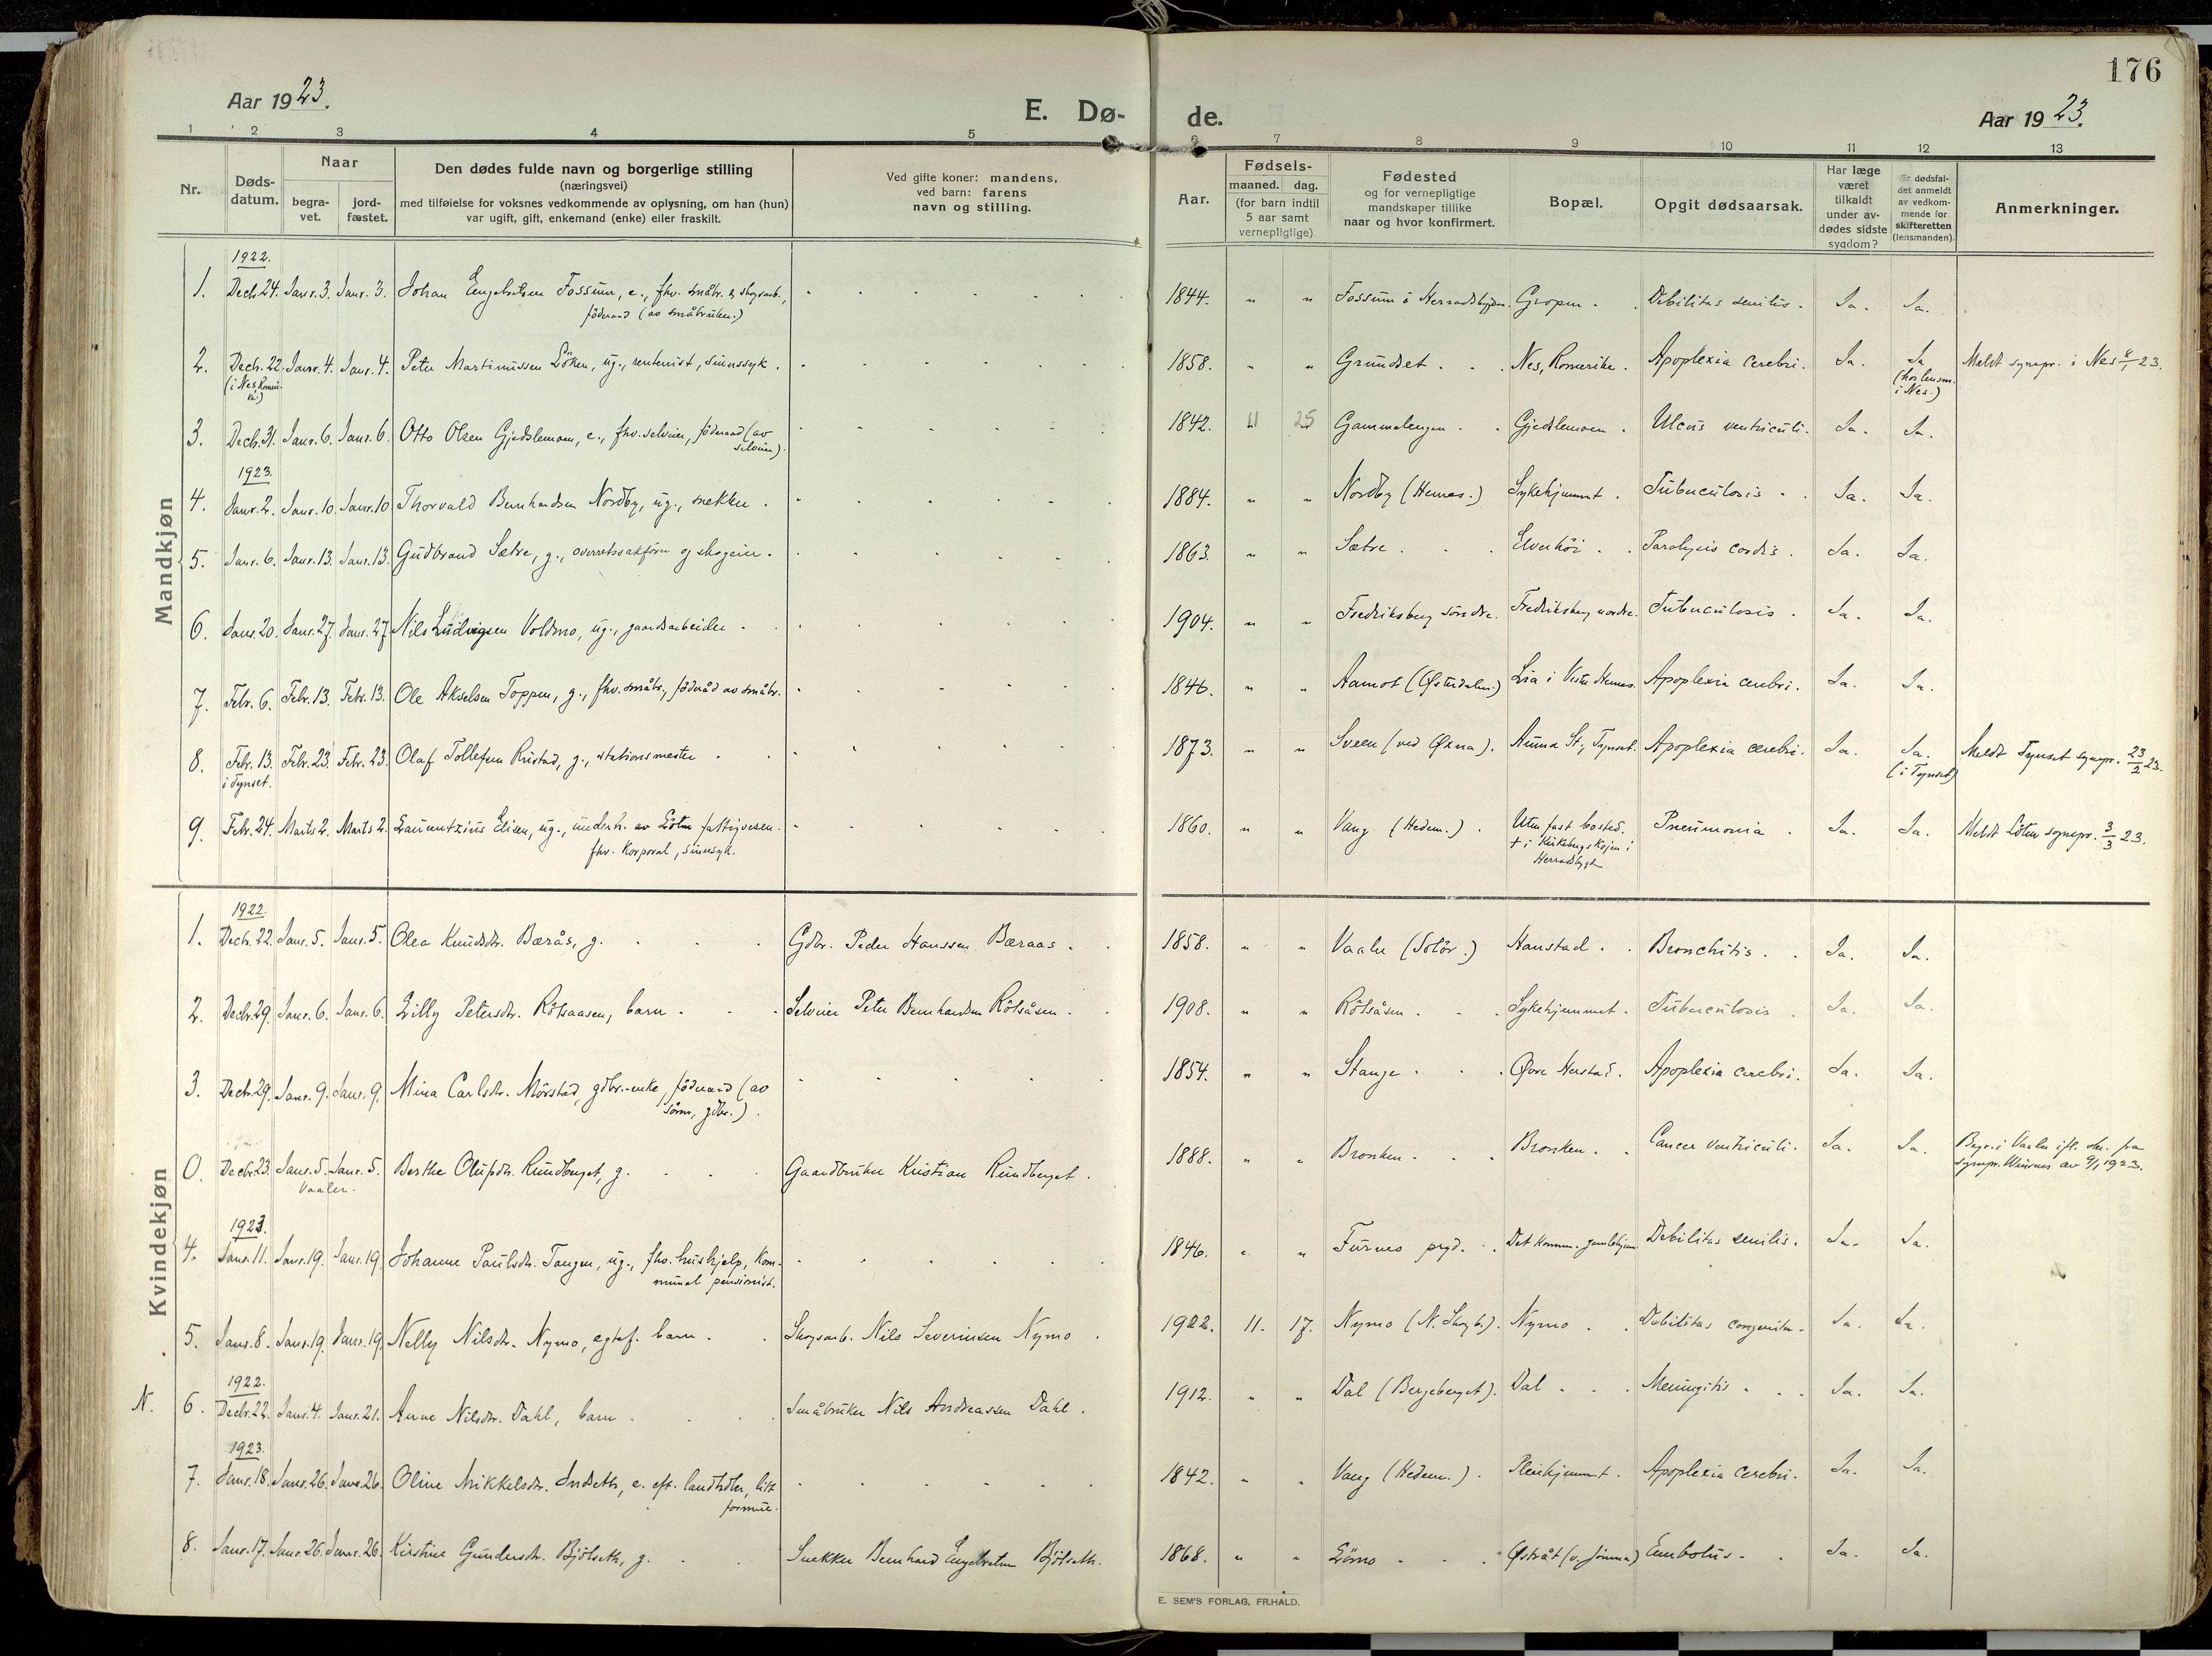 176
Aar 1923.
E. Dø-
de.
Aar 1923.
1 2 3 4 5 6 7 8 9 10 11 12 13
Nr.
Døds-
datum.
Naar
begra-
vet.
jord-
fæstet.
Den dødes fulde navn og borgerlige stilling
(næringsvei)
med tilføielse for voksnes vedkommende av oplysning, om han (hun)
var ugift, gift, enkemand (enke) eller fraskilt.
Ved gifte koner: mandens,
ved barn: farens
navn og stilling.
Aar.
Fødsels-
maaned. dag.
(for barn indtil
5 aar samt
vernepligtige)
Fødested
og for vernepligtige
mandskaper tillike
naar og hvor konfirmert.
Bopæl.
Opgit dødsaarsak.
Har læge
været
tilkaldt
under av-
dødes sidste
sygdom?
Er dødsfal-
det anmeldt
av vedkom-
mende for
skifteretten
(lensmanden).
Anmerkninger.
Mandkjøn
1922.
1. Decb. 24. Janr. 3. Janr. 3. Johan Engebretsen Fossum, e., fhv. småbr. & skogsarb., 1844. " " Fossum i Herradsbygden. Gropen. Debilitas senilis. Ja. Ja.
föderaad (av småbruken.)
2. Decb. 22. Janr. 4. Janr. 4. Peter Martinussen Löken, ug., rentenist, sinnssyk. 1858. " " Grundset. Nes, Romerike. Apoplexia cerebri. Ja. Ja Meldt sognepr. i Nes 23.
(i Nes, Romerike.)
(hos lensm. i Nes.)
3. Decb. 31. Janr. 6. Janr. 6. Otto Olsen Gjedslemoen, e., fhv. selveier, föderaad (av 1842. 11 25 Gammelengen. Gjedslemoen. Ulcus ventriculi. Ja. Ja.
selveier).
1923.
4. Janr. 2. Janr. 10. Janr. 10. Thorvald Bernhardsen Nordby, ug., snekker. 1884. " " Nordby (Hernes.) Sykehjemmet. Tuberculosis. Ja. Ja.
5. Janr. 6. Janr. 13. Janr. 13. Gudbrand Sætre, g., overretssakförer og skogeier. 1863. " " Sætre. Elverhöi. Paralysis cordis. Ja. Ja.
6. Janr. 20. Janr. 27. Janr. 27. Nils Ludvigsen Voldmo, ug., gaardsarbeider. 1904. " " Fredriksberg söndre. Fredriksberg nordre. Tuberculosis. Ja. Ja.
7. Febr. 6. Febr. 13. Febr. 13. Ole Akselsen Toppen, g., fhv. småbr., föderåd av småbr. 1846. " " Aamot (Østerdalen.) Lia i Vestre Hernes. Apoplexia cerebri. Ja. Ja.
8. Febr. 13. Febr. 23. Febr. 23. Olaf Tollefsen Rustad, g., stationsmester. 1873. " " Sveen (ved Øxna). Auma St., Tynset. Apoplexia cerebri. Ja. Ja. Meldt Tynset sognepr. 23/2 23.
i Tynset.
(i Tynset)
9. Febr. 24. Marts 2. Marts 2. Laurentzius Elisen, ug., underh. av Löten fattigvesen. 1860. " " Vang (Hedem.). Uten fast bosted. Pneumonia. Ja. Ja. Meldt Löten sognepr. 3/3 23.
fhv. korporal, sinnsyk.
+ i Kirkebergskojen i
Herradsbygden
Kvindekjøn
1922.
1. Decb. 22. Janr. 5. Janr. 5. Olea Knudsdtr. Bærås, g. Gdbr. Peder Hanssen Bæraas. 1858. " " Vaaler (Solör.) Hanstad. Bronchitis. Ja. Ja.
2. Decbr. 29. Janr. 6. Janr. 6. Lilly Petersdtr. Rötsaasen, barn. Selveier Peter Bernhardsen Rötsåsen. 1908. " " Rötsåsen. Sykehjemmet. Tuberculosis. Ja. Ja.
3. Decbr. 29. Janr. 9. Janr. 9. Mina Carlsdtr. Mörstad, gdbr.-enke, föderaad (av 1854. " " Stange. Øvre Herstad. Apoplexia cerebri. Ja. Ja.
sönn, gdbr.).
0. Decbr. 23. Janr. 5. Janr. 5. Berthe Olufsdtr. Rundberget, g. Gaardbruker Kristian Rundberget. 1888. " " Bronken. Bronken. Cancer ventriculi. Ja. Ja. Begr. i Vaaler ifl. skr. fra
Vaaler.
sognepr. av 9/1 1923.
1923.
4. Janr. 11. Janr. 19. Janr. 19. Johanne Paulsdtr. Tangen, ug., fhv. hushjelp, kom- 1846. " " Furnes prgd. Det komm. gamlehjem. Debilitas senilis. Ja. Ja.
munal pensionist.
5. Janr. 8. Janr. 19. Janr. 19. Nelly Nilsdtr. Nymo, egtef. barn. Skogsarb. Nils Severinsen Nymo. 1922. 11. 17. Nymo (N. Skogb.). Nymo. Debilitas congenita. Ja. Ja.
1922.
N. 6. Decbr. 22. Janr. 4. Janr. 21. Anne Nilsdtr. Dahl, barn. Småbruker Nils Andreassen Dahl. 1912. " " Dal (Bergeberget). Dal. Meningitis. Ja. Ja.
1923.
7. Janr. 18. Janr. 26. Janr. 26. Oline Mikkelsdtr. Indseth, e. eft. landhdler, litt 1842. " " Vang (Hedem.). Pleiehjemmet. Apoplexia cerebri. Ja. Ja.
formue.
8. Janr. 17. Janr. 26. Janr. 26. Kirstine Gundersdtr. Bjölseth, g. Snekker Bernhard Engebretsen Bjölseth. 1868. " " Lömo. Østråt (v. Jömna) Embolus. Ja. Ja.
E. SEM'S FORLAG, FR.HALD.